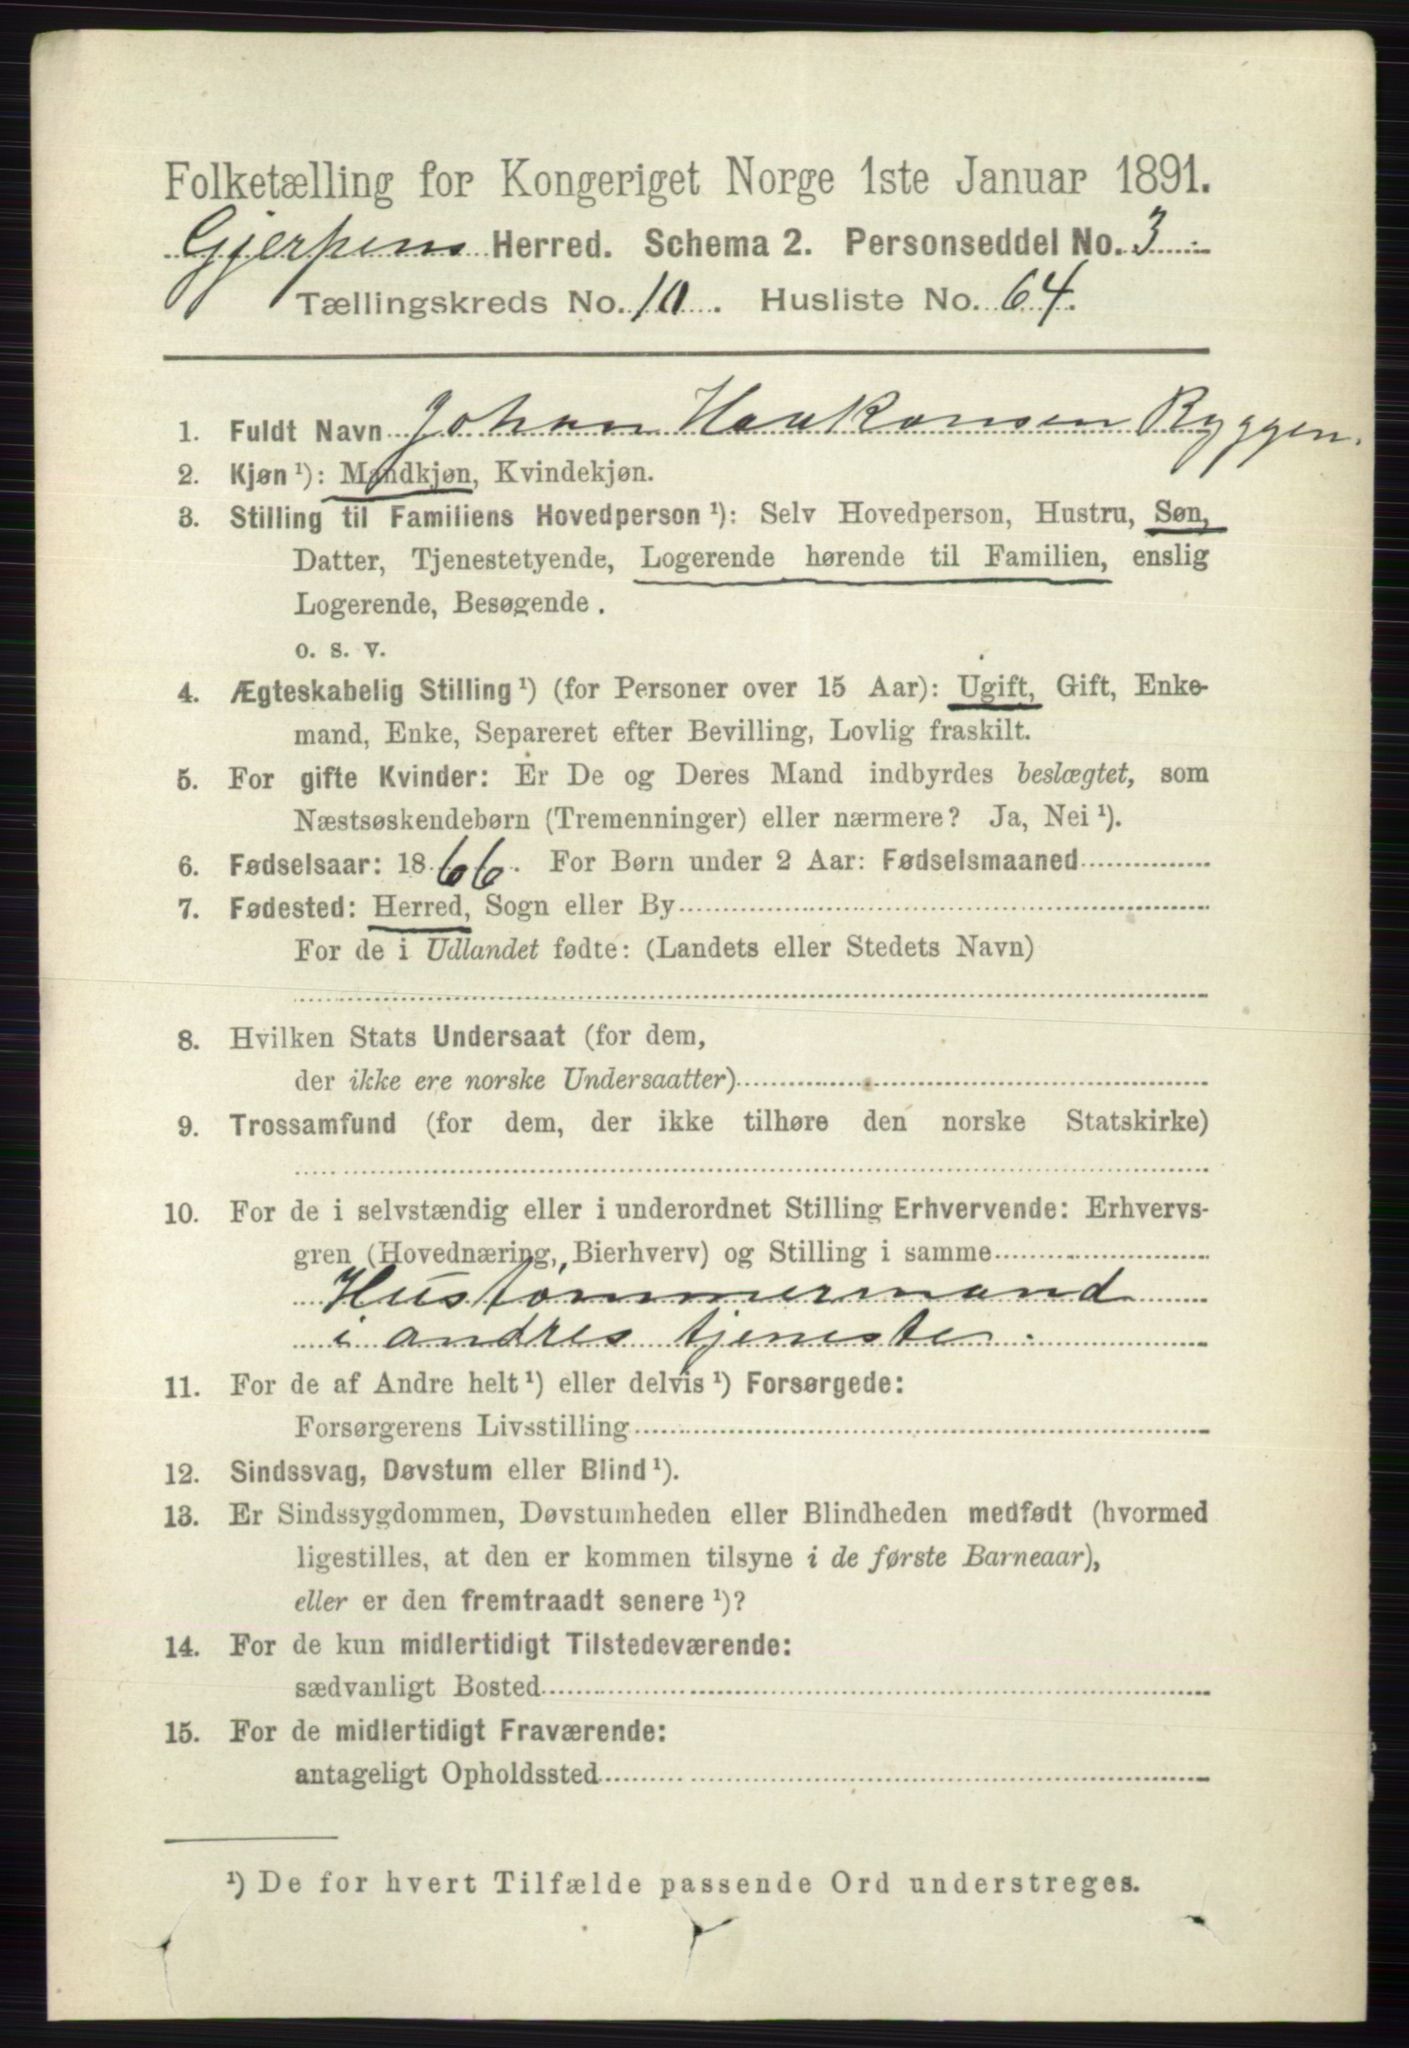 Folketælling for Kongeriget Norge 1ste Januar 1891.
Gjerpens Herred. Schema 2. Personseddel No. 3
Tællingskreds No. 10. Husliste No. 64.
1. Fuldt Navn Johan Haakonsen Ryggen.
2. Kjøn ¹): Mandkjøn, Kvindekjøn.
3. Stilling til Familiens Hovedperson ¹): Selv Hovedperson, Hustru, Søn,
Datter, Tjenestetyende, Logerende hørende til Familien, enslig
Logerende, Besøgende.
o. s. v.
4. Ægteskabelig Stilling ¹) (for Personer over 15 Aar): Ugift, Gift, Enke-
mand, Enke, Separeret efter Bevilling, Lovlig fraskilt.
5. For gifte Kvinder: Er De og Deres Mand indbyrdes beslægtet, som
Næstsøskendebørn (Tremenninger) eller nærmere? Ja, Nei ¹).
6. Fødselsaar: 1866. For Børn under 2 Aar: Fødselsmaaned
7. Fødested: Herred, Sogn eller By
For de i Udlandet fødte: (Landets eller Stedets Navn)
8. Hvilken Stats Undersaat (for dem,
der ikke ere norske Undersaatter)
9. Trossamfund (for dem, der ikke tilhøre den norske Statskirke)
10. For de i selvstændig eller i underordnet Stilling Erhvervende: Erhvervs-
gren (Hovednæring, Bierhverv) og Stilling i samme
Hustømmermand
i andres tjeneste.
11. For de af Andre helt ¹) eller delvis ¹) Forsørgede:
Forsørgerens Livsstilling
12. Sindssvag, Døvstum eller Blind ¹).
13. Er Sindssygdommen, Døvstumheden eller Blindheden medfødt (hvormed
ligestilles, at den er kommen tilsyne i de første Barneaar),
eller er den fremtraadt senere ¹)?
14. For de kun midlertidigt Tilstedeværende:
sædvanligt Bosted
15. For de midlertidigt Fraværende:
antageligt Opholdssted
¹) De for hvert Tilfælde passende Ord understreges.